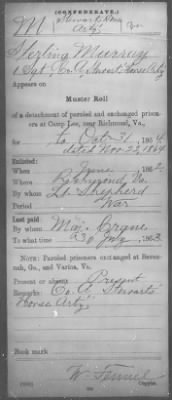 (CONFEDERATE.)
M Stewart Horse Arty.
Sterling Murray
1 Sgt, Co. A, Stuart Horse Arty
Appears on
Muster Roll
of a detachment of paroled and exchanged prisoners at Camp Lee, near Richmond, Va.,
for to Oct 31, 1864
dated Nov 22, 1864
Enlisted:
When June 1862
Where Richmond Va
By whom Lt Shepherd
Period War
Last paid
By whom Maj
To what time 30 July, 1863
NOTE: Paroled prisoners exchanged at Savannah, Ga., and Varina, Va.
Present or absent Present
Remarks: Co. A Stewarts Horse Arty
Book mark
Copyist.